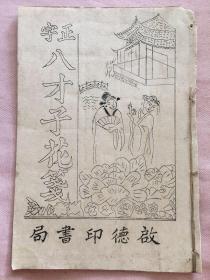 正字
八才子花箋
啟德印書局